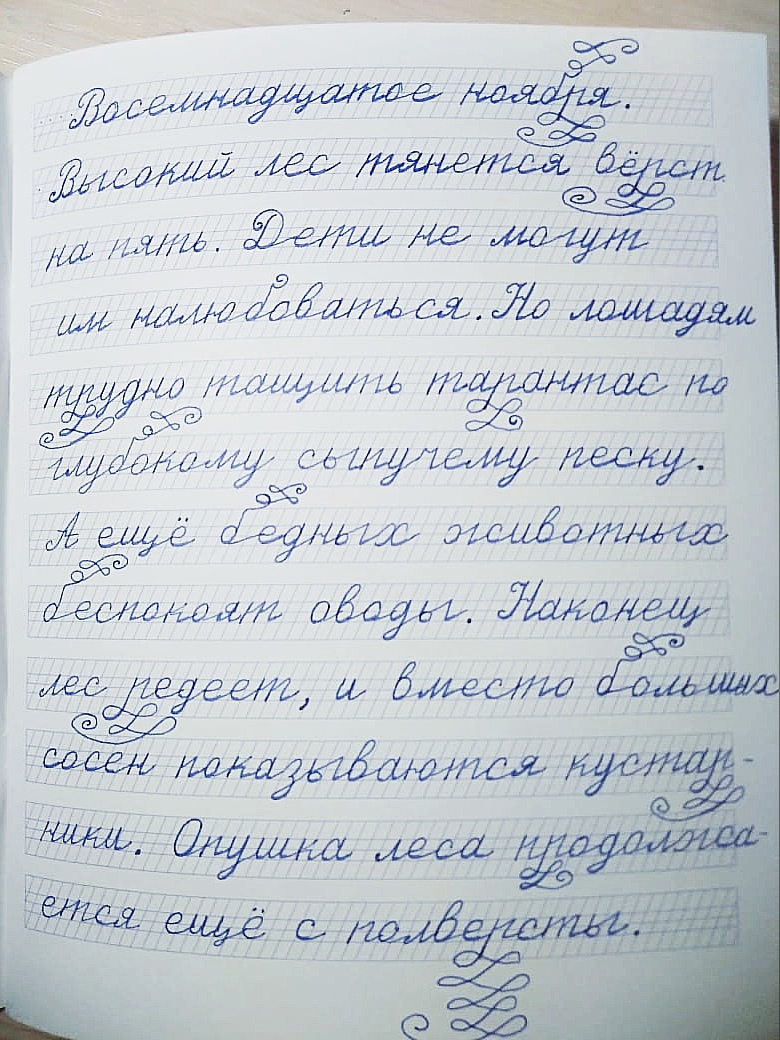 Восемнадцатое ноября.
Высокий лес тянется вёрст
на пять. Дети не могут
им налюбоваться. Но лошадям
трудно тащить тарантас по
глубокому сыпучему песку.
А ещё бедных животных
беспокоят оводы. Наконец
лес редеет, и вместо больших
сосен показываются кустар-
ники. Опушка леса продолжа-
ется ещё с полверсты.